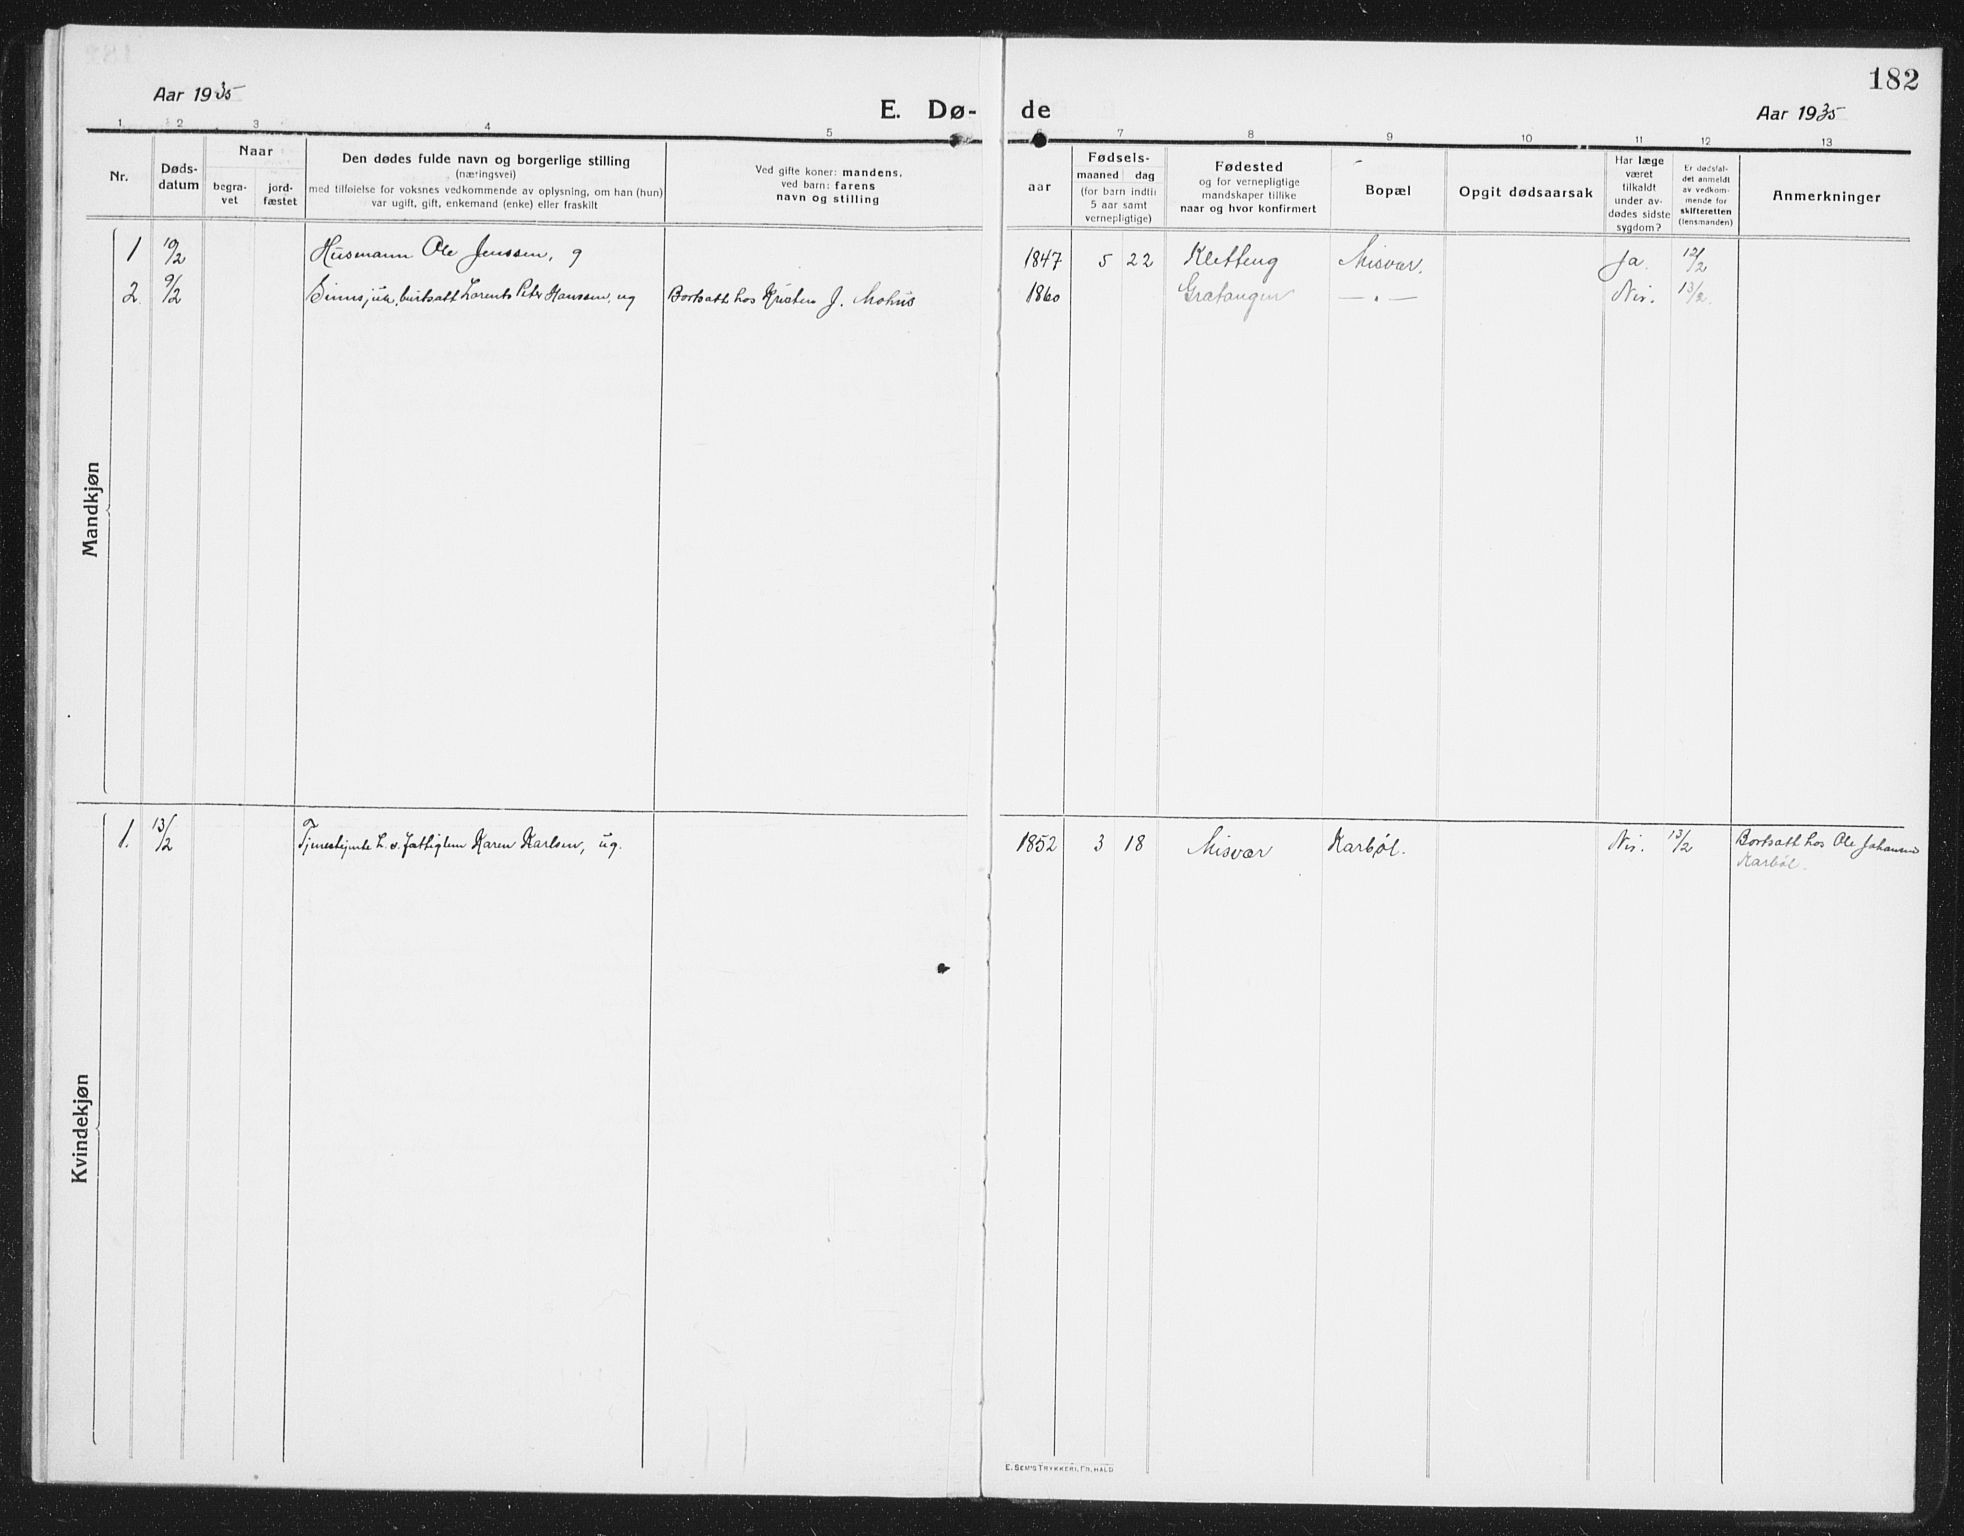 182
Aar 1935
E. Dø-
de
Aar 1935
1 2 3 4 5
7 8 9 10 11 12 13
Nr.
Døds-
datum
Naar
begra-
vet
jord-
fæstet
Den dødes fulde navn og borgerlige stilling
(næringsvei)
med tilføielse for voksnes vedkommende av oplysning, om han (hun)
var ugift, gift, enkemand (enke) eller fraskilt
Ved gifte koner: mandens,
ved barn: farens
navn og stilling
aar
Fødsels-
maaned dag
(for barn indtil
5 aar samt
vernepligtige)
Fødested
og for vernepligtige
mandskaper tillike
naar og hvor konfirmert
Bopæl
Opgit dødsaarsak
Har læge
været
tilkaldt
under av-
dødes sidste
sygdom?
Er dødsfal-
det anmeldt
av vedkom-
mende for
skifteretten
(lensmanden)
Anmerkninger
Mandkjøn
1 10/2 Husmann Ole Jenssen, g 1847 5 22 Kletteng Misvær. Ja. 12/2
2. 9/2 Sinnsjuk, burtsatt Lorents Peter Hansen, ug Bortsatt hos Kristen J. Mohus 1860 Gratangen — " — Nei. 13/2.
Kvindekjøn
1. 13/2 Tjenestejente Karen Karlsen, ug. 1852 3 18 Misvær Karbøl. Nei. 13/2 Bortsatt hos Ole Johansen
Karbøl.
E. SEM'S TRYKKERI, FR. HALD